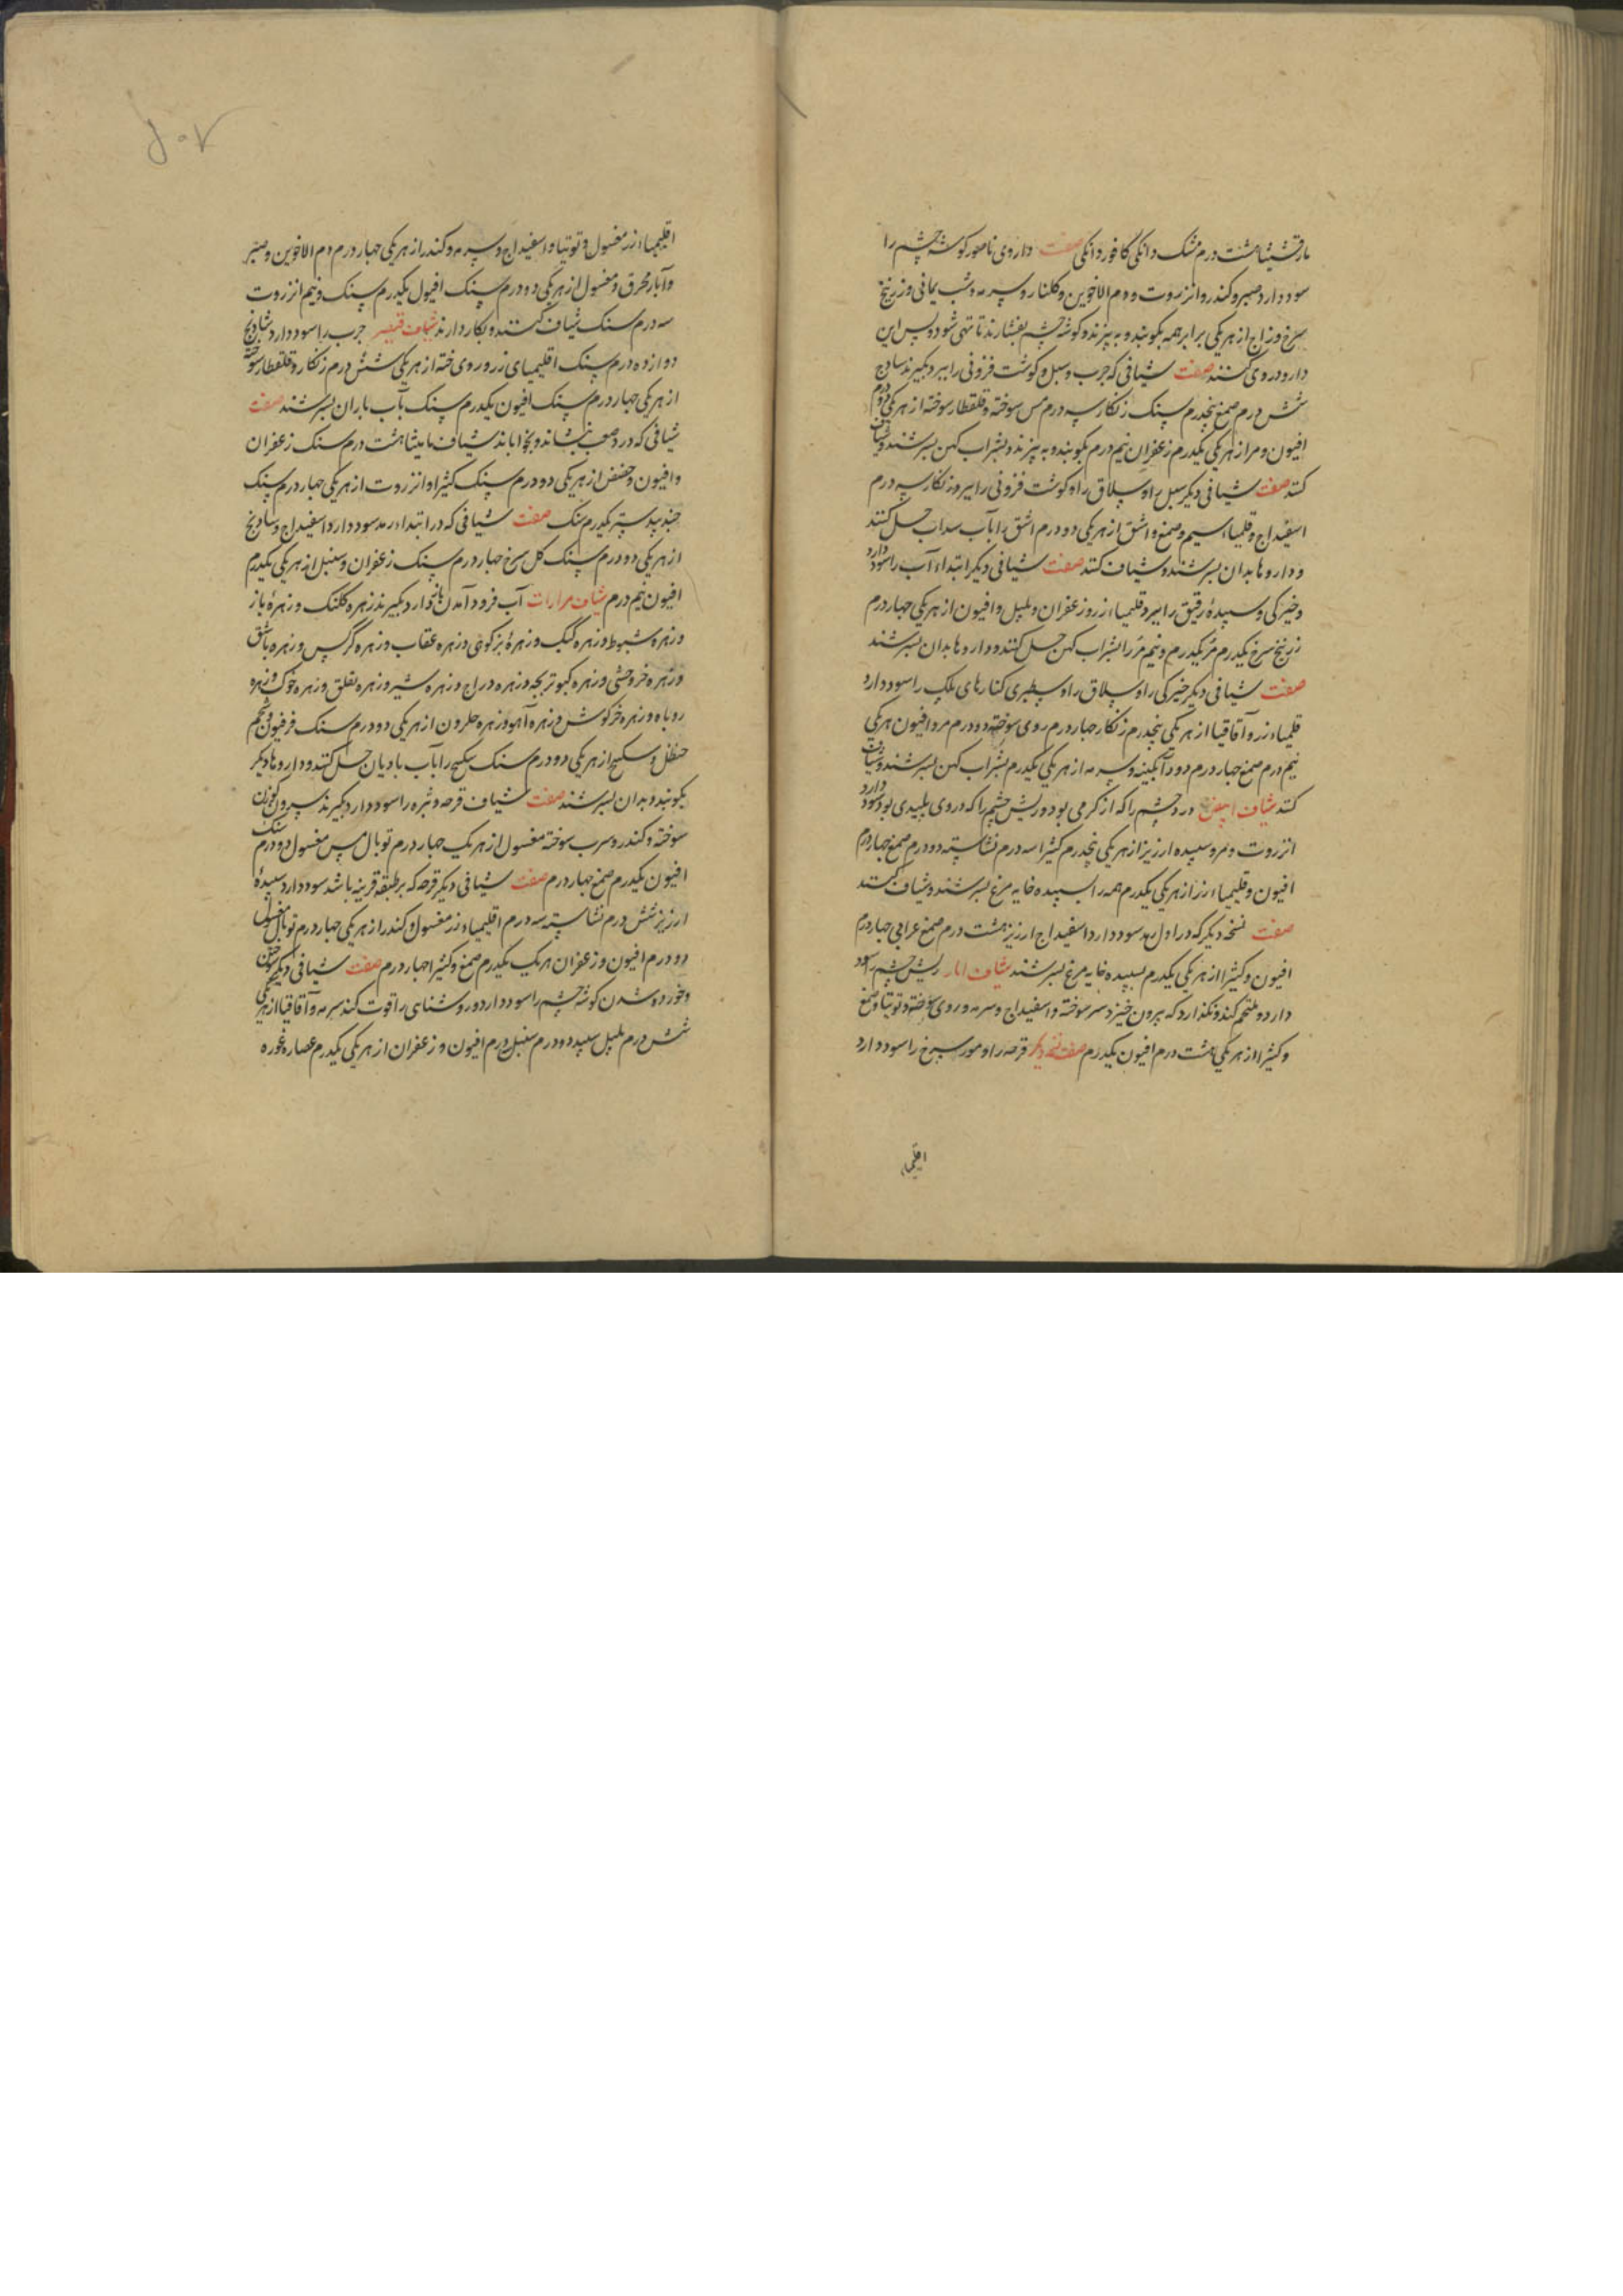 مارقشیشا هشت درم مشک دانکی کافور دانکی صفت داروی ناصور کوشه چشم را
سود دارد صبر و کندر و انزروت و دم الاخوین و کلنار و سرمه و شب یمانی و زرنیخ
سرخ و زاج از هر یکی برابر همه بکوبند و به پزند و کوشه چشم بفشارند تا تهی شود و پس این
دارو در وی کنند صفت شیافی که جرب و سبل و کوشت فزونی را ببرد بکیرند سادج
شش درم صمغ پنجدرم سنک زنکار سه درم مس سوخته و قلقطار سوخته از هر یکی دو درم
افیون و مر از هر یکی یکدرم زعفران نیم درم بکوبند و به پزند و بشراب کهن بسرشند و شیاف
کنند صفت شیافی دیکر سبل را و سلاق را و کوشت فزونی را ببرد زنکار سه درم
اسفیداج و قلیمیاء سیم و صمغ و اشق از هر یکی دو درم اشق را بآب سداب حل کنند
و داروها بدان بسرشند و شیاف کنند صفت شیافی دیکر ابتداء آب را سود دارد
و خیرکی و سپیدهٔ رقیق را ببرد قلیمیاء زر و زعفران و پلپل و افیون از هر یکی چهار درم
زرنیخ سرخ یکدرم مر یکدرم و نیم مر را بشراب کهن حل کنند و داروها بدان بسرشند
صفت شیافی دیکر خیرکی را و سلاق را و سطبری کنارهای پلک را سود دارد
قلیمیاء زر و آقاقیا از هر یکی پنجدرم زنکار چهار درم روی سوخته دو درم مر و افیون هر یکی
نیم درم صمغ چهار درم دود آبکینه و سرمه از هر یکی یکدرم بشراب کهن بسرشند و شیاف
کنند شیاف ابیض درد چشم را که از کرمی بود و ریش چشم را که در وی پلیدی بود سود دارد
انزروت و مر و سپیده ارزیز از هر یکی پنجدرم کثیرا سه درم نشاسته دو درم صمغ چهار درم
افیون و قلیمیاء زر از هر یکی یکدرم همه را بسپیده خایه مرغ بسرشند و شیاف کنند
صفت نسخه دیکر که در اول رمد سود دارد اسفیداج ارزیز هشت درم صمغ عرابی چهار درم
افیون و کثیرا از هر یکی یکدرم بسپیده خایه مرغ بسرشند شیاف ابار ریش چشم را سود
دارد و ملتحم کند و نکذارد که بیرون خیزد سر سوخته و اسفیداج و سرمه و روی سوخته و توتیا و صمغ
و کثیرا از هر یکی هشت درم افیون یکدرم صفت نسخه دیکر قرحه را و مورسرخ را سود دارد
اقلیمیاء
اقلیمیاء زر مغسول و توتیا و اسفیداج و سرمه و کندر از هر یکی چهار درم دم الاخوین و صبر
و آبار محرق و مغسول از هر یکی دو درم سنک افیون یکدرم سنک و نیم انزروت
سه درم سنک شیاف کنند و بکار دارند شیاف قیصر جرب را سود دارد شادنج
دوازده درم سنک اقلیمیای زر و روی سوخته از هر یکی شش درم زنکار و قلقطار سوخته
از هر یکی چهار درم سنک افیون یکدرم سنک بآب باران بسرشند صفت
شیافی که درد صعب بنشاند و بخواباند شیاف مامیثا هشت درم سنک زعفران
و افیون و حضض از هر یکی دو درم سنک کثیرا و انزروت از هر یکی چهار درم سنک
جندبیدستر یکدرم سنک صفت شیافی که در ابتداء رمد سود دارد اسفیداج و سادنج
از هر یکی دو درم سنک کل سرخ چهار درم سنک زعفران و سنبل از هر یکی یکدرم
افیون نیم درم شیاف مرارات آب فرود آمدن باز دارد بکیرند زهره کلنک و زهرهٔ باز
و زهره شبوط و زهره کبک و زهرهٔ بز کوهی و زهره عقاب و زهره کرکس و زهره باشق
و زهره خر وحشی و زهره کبوتر بچه و زهره دراج و زهره شیر و زهره لقلق و زهره خوک و زهره
روباه و زهره خرکوش و زهره آهو و زهره حلزون از هر یکی دو درم سنک فرفیون و شحم
حنظل و سکبینج از هر یکی دو درم سنک سکبینج را بآب بادیان حل کنند و داروها دیکر
بکوبند و بدان بسرشند صفت شیاف قرحه و بثره را سود دارد بکیرند سرون کوزن
سوخته و کندر و سرب سوخته مغسول از هر یک چهار درم توبال مس مغسول دو درم سنک
افیون یکدرم صمغ چهار درم صفت شیافی دیکر قرحه که بر طبقه قرنیه باشد سود دارد سپیدهٔ
ارزیز شش درم نشاسته سه درم اقلیمیاء زر مغسول و کندر از هر یکی چهار درم توبال مغسول
دو درم افیون و زعفران هر یک یکدرم صمغ و کثیرا چهار درم صفت شیافی دیکر
و خورده شدن کوشه چشم را سود دارد و روشنایی را قوت کند سرمه و آقاقیا از هر یکی
شش درم پلپل سپید دو درم سنبل درم افیون و زعفران از هر یکی یکدرم عصاره غوره